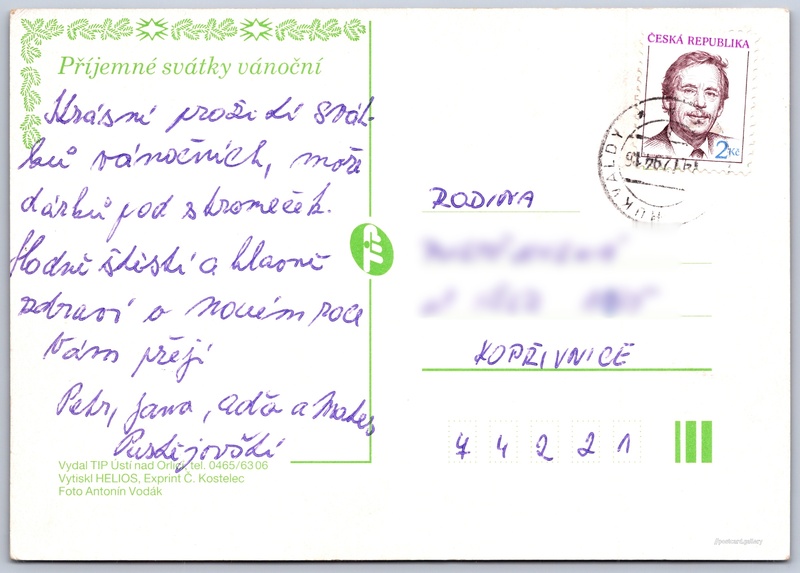 Příjemné svátky vánoční
Krásní prožidí svát-
ků vánočních, moře
dárků pod stromeček.
Hodně štěstí a hlavně
zdraví v novém roce
Vám přejí
Petr, Jana, Aďa a Mates
Pustějovští
Vydal TIP Ústí nad Orlicí, tel. 0465/63 06
Vytiskl HELIOS, Exprint Č. Kostelec
Foto Antonín Vodák
ČESKÁ REPUBLIKA
2 Kč
HUKVALDY
RODINA
KOPŘIVNICE
74221